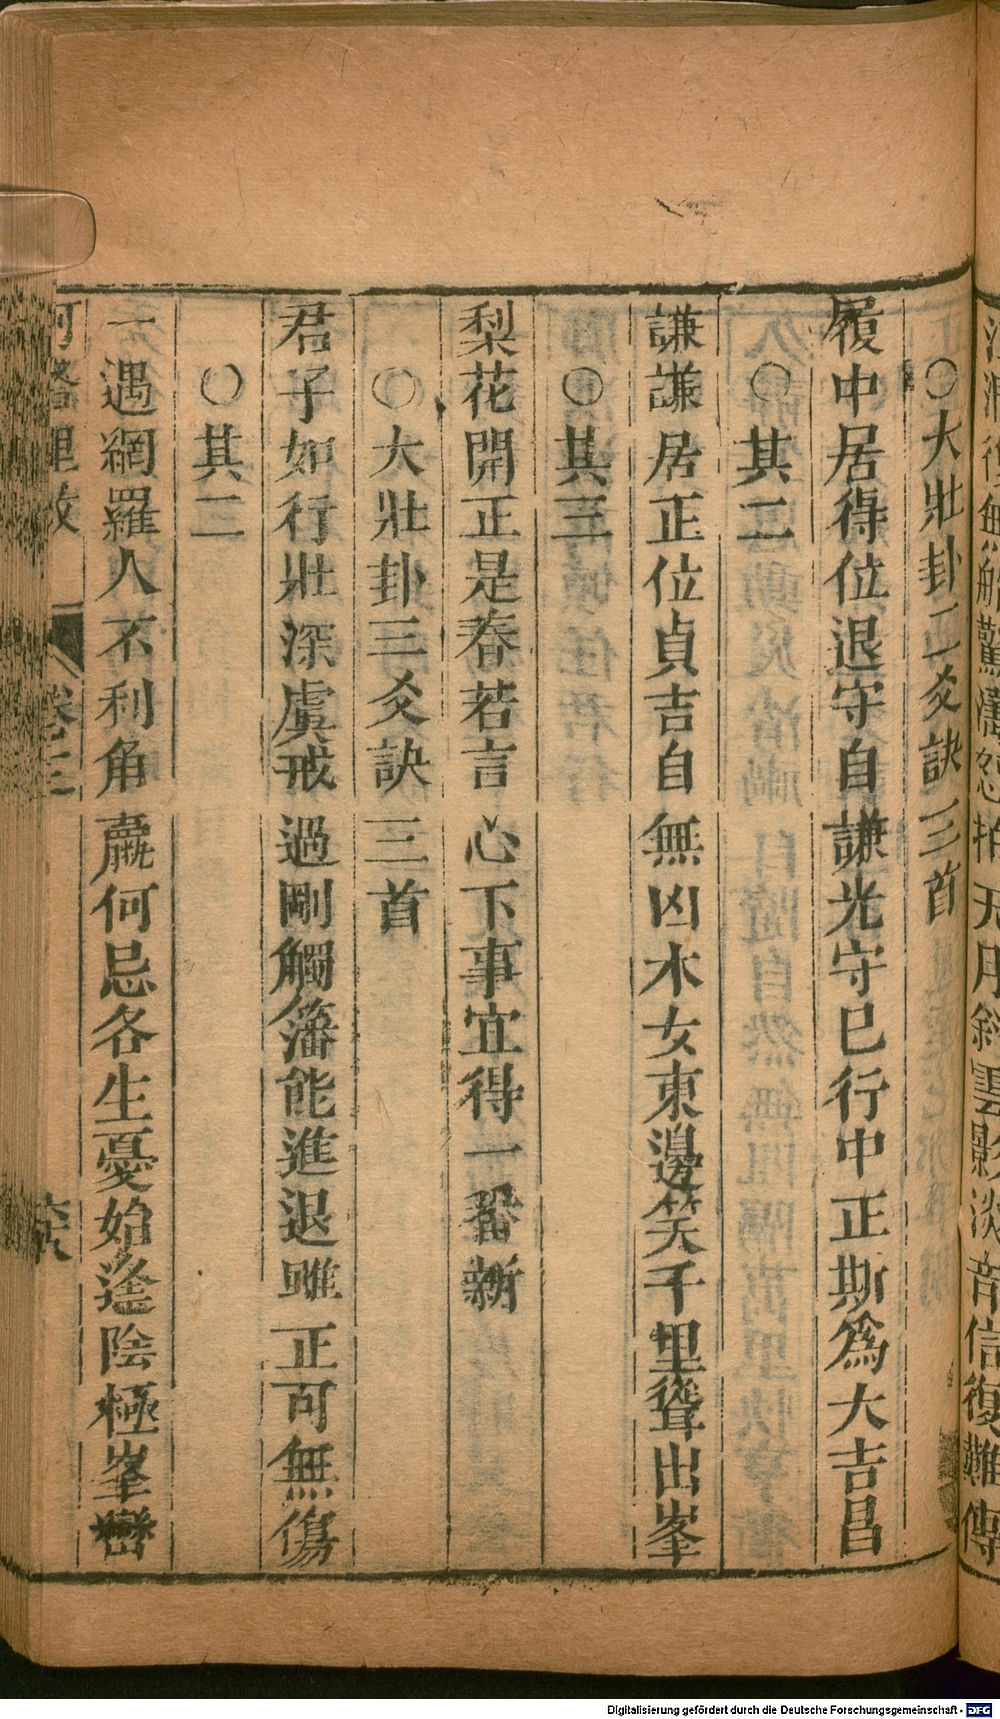 ○大壯卦二爻訣三首
履中居得位退守自謙光守已行中正斯為大吉昌
○其二
謙謙居正位貞吉自無凶木女東邊笑千里聳出峯
○其三
梨花開正是春若言心下事宜得一番新
○大壯卦三爻訣三首
君子如行壯深虞戒過剛觸籓能進退雖正可無傷
○其二
一遇網羅人不利角羸何忌各生憂始逢陰極峯巒
理數
卷之三
Digitalisierung gefördert durch die Deutsche Forschungsgemeinschaft - DFG